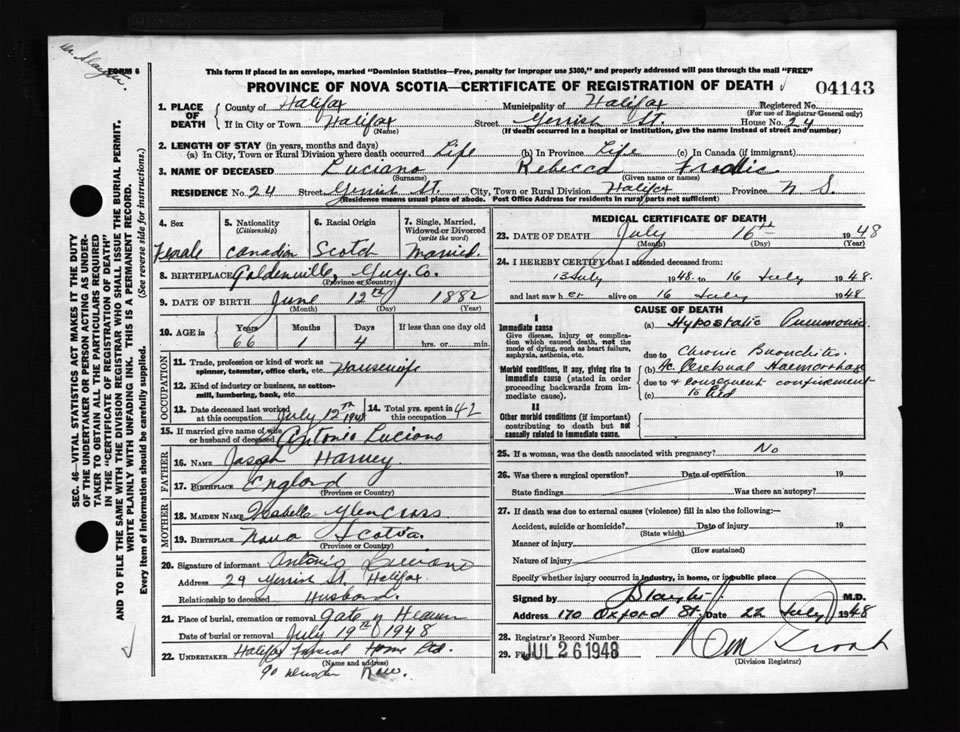 FORM 6
This form if placed in an envelope, marked "Dominion Statistics—Free, penalty for improper use $300," and properly addressed will pass through the mail "FREE"
PROVINCE OF NOVA SCOTIA—CERTIFICATE OF REGISTRATION OF DEATH 04143
SEC. 46—VITAL STATISTICS ACT MAKES IT THE DUTY
OF THE UNDERTAKER OR PERSON ACTING AS UNDER-
TAKER TO OBTAIN ALL THE PARTICULARS REQUIRED
IN THE "CERTIFICATE OF REGISTRATION OF DEATH"
AND TO FILE THE SAME WITH THE DIVISION REGISTRAR WHO SHALL ISSUE THE BURIAL PERMIT.
WRITE PLAINLY WITH UNFADING INK. THIS IS A PERMANENT RECORD.
Every item of information should be carefully supplied. (See reverse side for instructions.)
1. PLACE OF DEATH County of Halifax Municipality of Halifax Registered No.
(For use of Registrar General only)
If in City or Town Halifax Street Gerrish St. House No. 24
(Name) (If death occurred in a hospital or institution, give the name instead of street and number)
2. LENGTH OF STAY (in years, months and days)
(a) In City, Town or Rural Division where death occurred Life (b) In Province Life (c) In Canada (if immigrant)
3. NAME OF DECEASED Luciano Rebecca
(Surname) (Given name or names)
RESIDENCE No. 24 Street Gerrish St. City, Town or Rural Division Halifax Province N S.
(Residence means usual place of abode. Post Office Address for residents in rural parts not sufficient)
4. Sex 5. Nationality (Citizenship) 6. Racial Origin 7. Single, Married, Widowed or Divorced (write the word)
Female Canadian Scotch Married
8. BIRTHPLACE Goldenville, Guy. Co.
(Province or Country)
9. DATE OF BIRTH June 12th 1882
(Month) (Day) (Year)
10. AGE in Years Months Days If less than one day old
66 1 4 hrs. or min.
OCCUPATION
11. Trade, profession or kind of work as spinner, teamster, office clerk, etc. Housewife
12. Kind of industry or business, as cotton-mill, lumbering, bank, etc.
13. Date deceased last worked at this occupation July 12th 1948 14. Total yrs. spent in this occupation 42
15. If married give name of wife or husband of deceased Antonio Luciano
FATHER
16. NAME Joseph Harvey
17. BIRTHPLACE England
(Province or Country)
MOTHER
18. MAIDEN NAME Isabella Glencross
19. BIRTHPLACE Nova Scotia
(Province or Country)
20. Signature of informant Antonio Luciano
Address 29 Gerrish St. Halifax
Relationship to deceased Husband.
21. Place of burial, cremation or removal Gate of Heaven
Date of burial or removal July 19th 1948
22. UNDERTAKER Halifax Funeral Home Ltd.
(Name and address)
90 Row.
MEDICAL CERTIFICATE OF DEATH
23. DATE OF DEATH July 16th 1948
(Month) (Day) (Year)
24. I HEREBY CERTIFY that I attended deceased from:
13 July 1948 to 16 July 1948.
and last saw her alive on 16 July 1948
CAUSE OF DEATH
I
Immediate cause (a) Hypostatic Pneumonia
Give disease, injury or complication which caused death, not the mode of dying, such as heart failure, asphyxia, asthenia, etc.
due to Chronic Bronchitis.
Morbid conditions, if any, giving rise to immediate cause (stated in order proceeding backwards from immediate cause).
(b) Ac. Cerebral Haemorrhage
due to + consequent confinement
(c) to Bed
II
Other morbid conditions (if important) contributing to death but not causally related to immediate cause.
25. If a woman, was the death associated with pregnancy? No
26. Was there a surgical operation? Date of operation 19
State findings Was there an autopsy?
27. If death was due to external causes (violence) fill in also the following:—
Accident, suicide or homicide? Date of injury 19
(State which)
Manner of injury
(How sustained)
Nature of injury
Specify whether injury occurred in industry, in home, or in public place
Signed by M.D.
Address 170 Oxford St. Date 22 July 1948
28. Registrar's Record Number
29. JUL 26 1948
(Division Registrar)